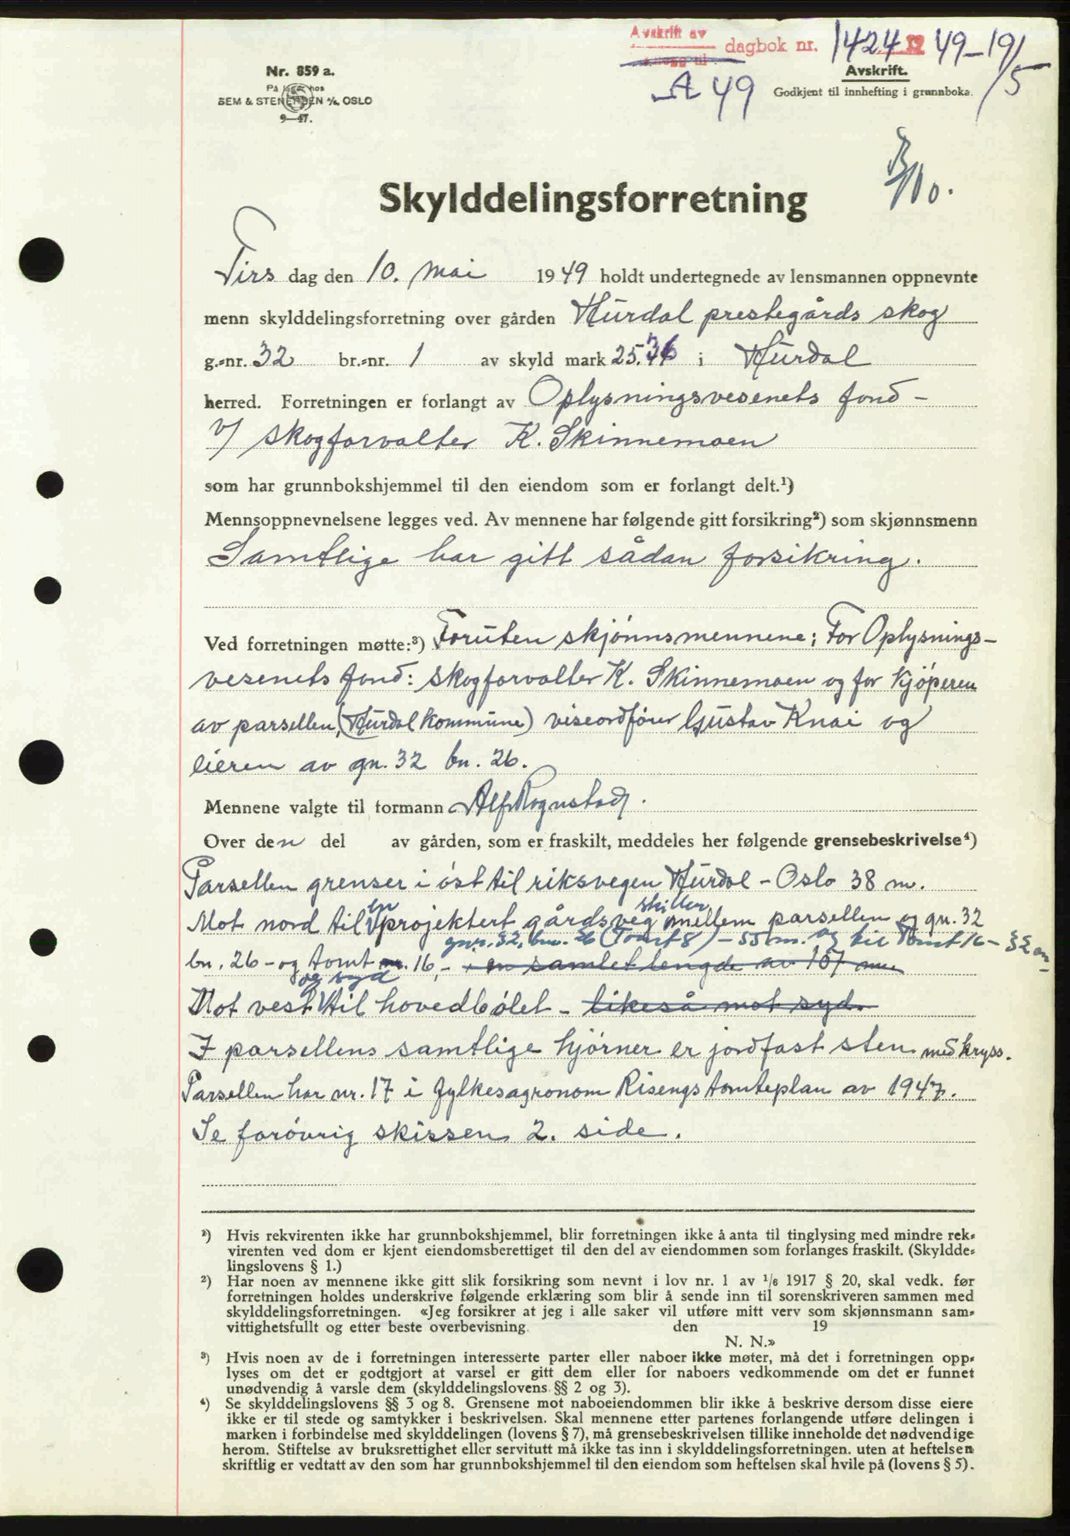 Avskrift av
dagbok nr. 1424 49-19/5
A 49
Avskrift.
Godkjent til innhefting i grunnboka.
Nr. 859 a.
På lager hos
SEM & STENERSEN A/s, OSLO
9—47.
Skylddelingsforretning
Tirsdag den 10. mai 1949 holdt undertegnede av lensmannen oppnevnte
menn skylddelingsforretning over gården Hurdal prestegårds skog
g.-nr. 32 br.-nr. 1 av skyld mark 25.36 i Hurdal
herred. Forretningen er forlangt av Oplysningsvesenets fond -
v/ skogforvalter K. Skinnemoen
som har grunnbokshjemmel til den eiendom som er forlangt delt.¹)
Mennsoppnevnelsene legges ved. Av mennene har følgende gitt forsikring²) som skjønnsmenn
Samtlige har gitt sådan forsikring.
Ved forretningen møtte:³) Foruten skjönnsmennene; For Oplysnings-
vesenets fond: skogforvalter K. Skinnemoen og for kjöperen
av parsellen, (Hurdal kommune) viseordfører Gustav Knai og
eieren av gn. 32 bn. 26.
Mennene valgte til formann Alf Rognstad.
Over den del av gården, som er fraskilt, meddeles her følgende grensebeskrivelse⁴)
Parsellen grenser i öst til riksvegen Hurdal - Oslo 38 m.
skiller
Mot nord til en projektert gårdsveg mellem parsellen og gn. 32
gnr. 32, bnr. 26 (Tomt 8) - 55 m. og til Tomt 16 - 52 m -
bn. 26 - og tomt nr. 16, - i en samlet lengde av 107 m.
og syd
Mot vest til hovedbølet - likeså mot syd.
I parsellens samtlige hjörner er jordfast sten med kryss.
Parsellen har nr. 17 i fylkesagronom Risengs tomteplan av 1947.
Se forövrig skissen 2. side.
¹) Hvis rekvirenten ikke har grunnbokshjemmel, blir forretningen ikke å anta til tinglysing med mindre rek-
virenten ved dom er kjent eiendomsberettiget til den del av eiendommen som forlanges fraskilt. (Skyldde-
lingslovens § 1.)
²) Har noen av mennene ikke gitt slik forsikring som nevnt i lov nr. 1 av 1/6 1917 § 20, skal vedk. før
forretningen holdes underskrive følgende erklæring som blir å sende inn til sorenskriveren sammen med
skylddelingsforretningen. «Jeg forsikrer at jeg i alle saker vil utføre mitt verv som skjønnsmann sam-
vittighetsfullt og etter beste overbevisning. den 19
N. N.»
³) Hvis noen av de i forretningen interesserte parter eller naboer ikke møter, må det i forretningen opp-
lyses om det er godtgjort at varsel er gitt dem eller for naboers vedkommende om det er funnet
unødvendig å varsle dem (skylddelingslovens §§ 2 og 3).
⁴) Se skylddelingslovens §§ 3 og 8. Grensene mot naboeiendommen blir ikke å beskrive dersom disse eiere
ikke er til stede og samtykker i beskrivelsen. Skal mennene etter partenes forlangende utføre delingen i
marken i forbindelse med skylddelingen (lovens § 7), må grensebeskrivelsen tillike inneholde det nødvendige
herom. Stiftelse av bruksrettighet eller servitutt må ikke tas inn i skylddelingsforretningen. uten at heftelsen
skriftlig er vedtatt av den som har grunnbokshjemmel til den eiendom som heftelsen skal hvile på (lovens § 5).